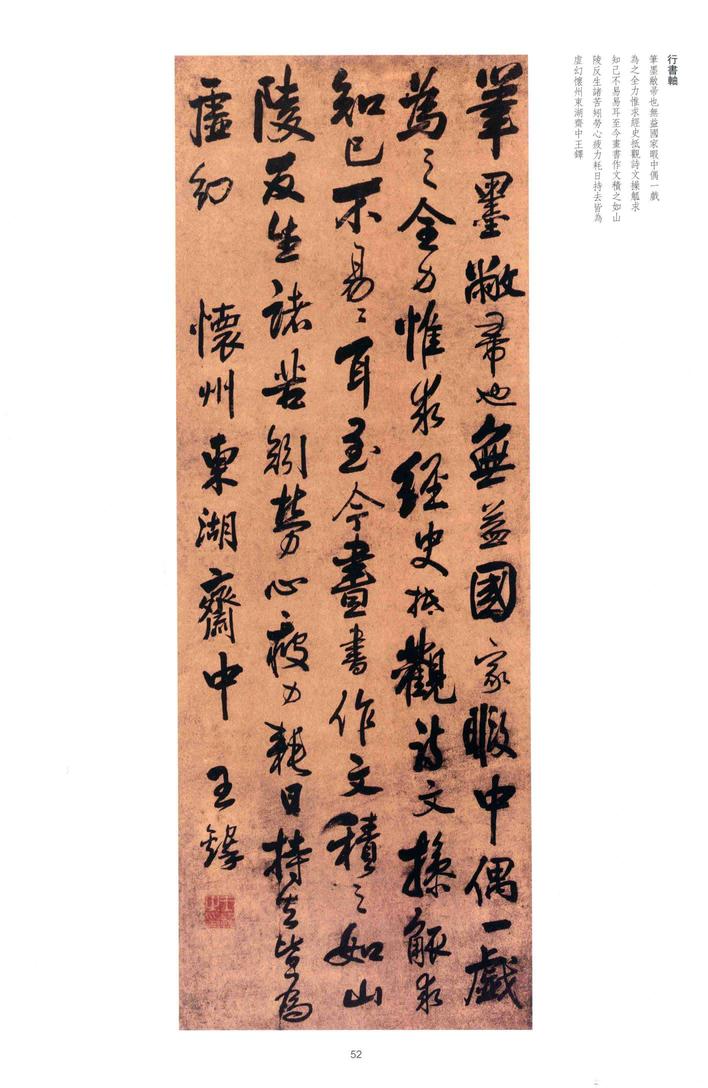 行書軸
筆墨敝帚也無益國家暇中偶一戲
為之全力惟求經史抵觀詩文操觚求
知己不易易耳至今畫書作文積之如山
陵反生諸苦矧勞心疲力耗日持去皆為
虛幻懷州東湖齋中王鐸
筆墨敝帚也無益國家暇中偶一戲
為之全力惟求經史抵觀詩文操觚求
知己不易〻耳至今畫書作文積〻如山
陵反生諸苦矧勞心疲力耗日持去皆為
虛幻 懷州東湖齋中 王鐸
52